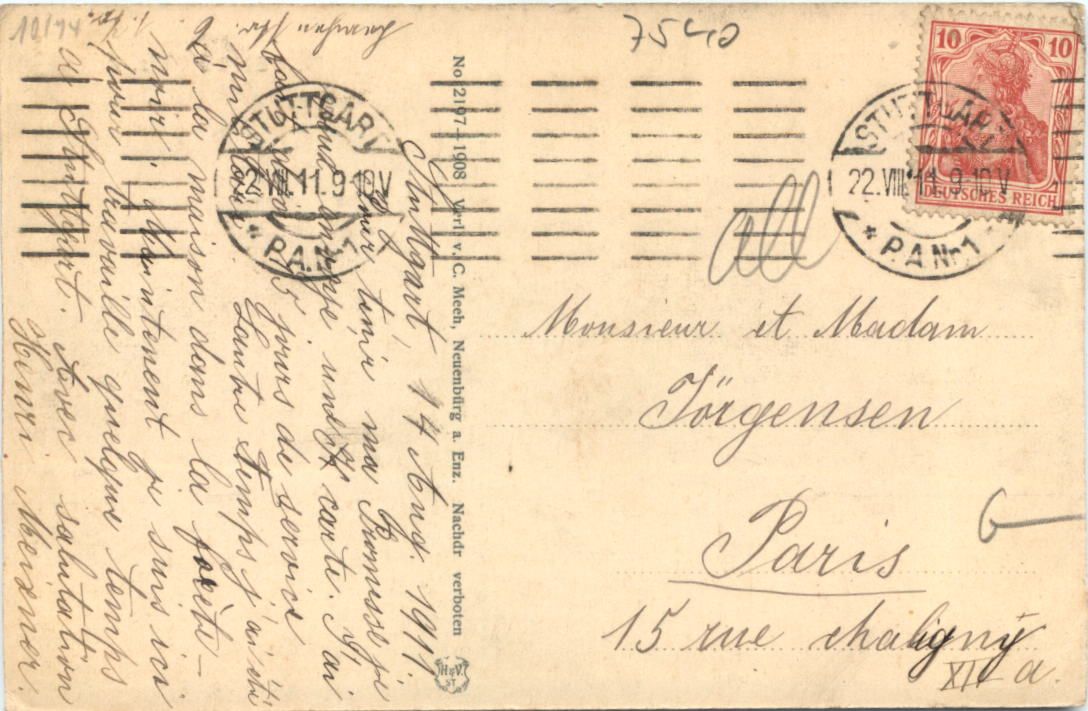 10/74
7540
10 10
DEUTSCHES REICH
STUTTGART
22.VIII.11.9-10V
* P.A.Nr.1
STUTTGART
22.VIII.11.9-10V
* P.A.Nr.1
all
No 2197 - 1908 Verl. v. C. Meeh, Neuenbürg a. Enz. Nachdr verboten
H&V. ST.
Stuttgart, 14 Aug. 1911
Pour tenir ma Promesse je
carte. J'ai
jours de service
temps j'ai été
à la maison dans la forète –
noir. Maintenent je suis ici
pour travaille quelque temps
à Stuttgart. Avec salutation
Henri Meixner.
Monsieur et Madam
Jörgensen
Paris
15 rue chaligny
XII a.